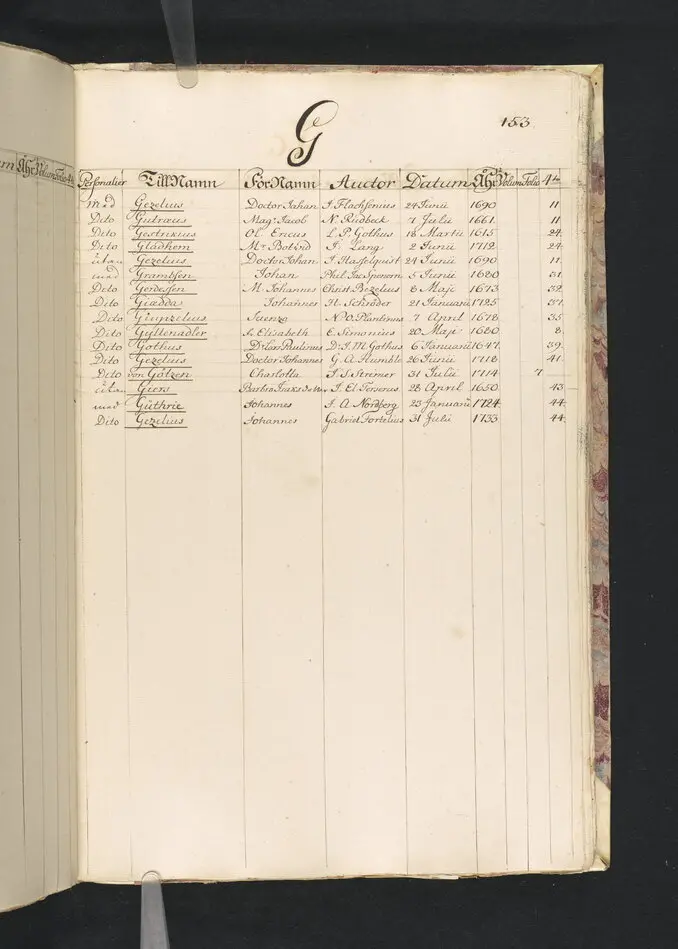 G
153
Personalier TillNamn FörNamn Auctor Datum Åhr Volum Folio 4to
med Gezelius Doctor Johan J Flachsenius 24 Junii 1690 11
Dito Gutræus Mag: Jacob N. Rudbeck 7 Julii 1661 11
Dito Gestrikius Ol. Ericus L P Gothus 18 Martii 1615 24
Dito Gladhem Mr Botvid J. Lang 2 Junii 1712 24
Gezelius Doctor Johan J Hasselquist 24 Junii 1690 11
med Grambsen Johan Phil. 5 Junii 1680 31
Dito Gerdessen M. Johannes Christ. Bezelius 8 Maji 1673 32
Dito Giædda Johannes H. Schröder 21 Januarii 1725 37
Dito N O Plantinus 7 April 1678 35
Dito Gyllenadler Elisabeth E Simonius 20 Maji 1680 8
Dito Gothus Dr Lars Paulinus Dr J. M Gothus 6 Januarii 1647 39
Dito Gezelius Doctor Johannes G A Humble 26 Junii 1718 41
Dito von Götzen Charlotta J S Stremer 31 Julii 1714 7
Giers Barbro J. El Terserus 28 April 1650 43
med Güthrie Johannes J. A Nordberg 23 Januarii 1724 44
Dito Gezelius Johannes Gabriel Fortelius 31 Julii 1733 44